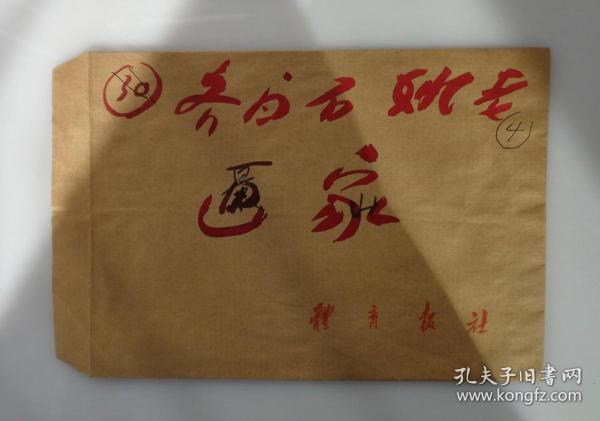 30 齐白石
4
逼 家
體育报社
孔夫子旧书网
www.kongfz.com